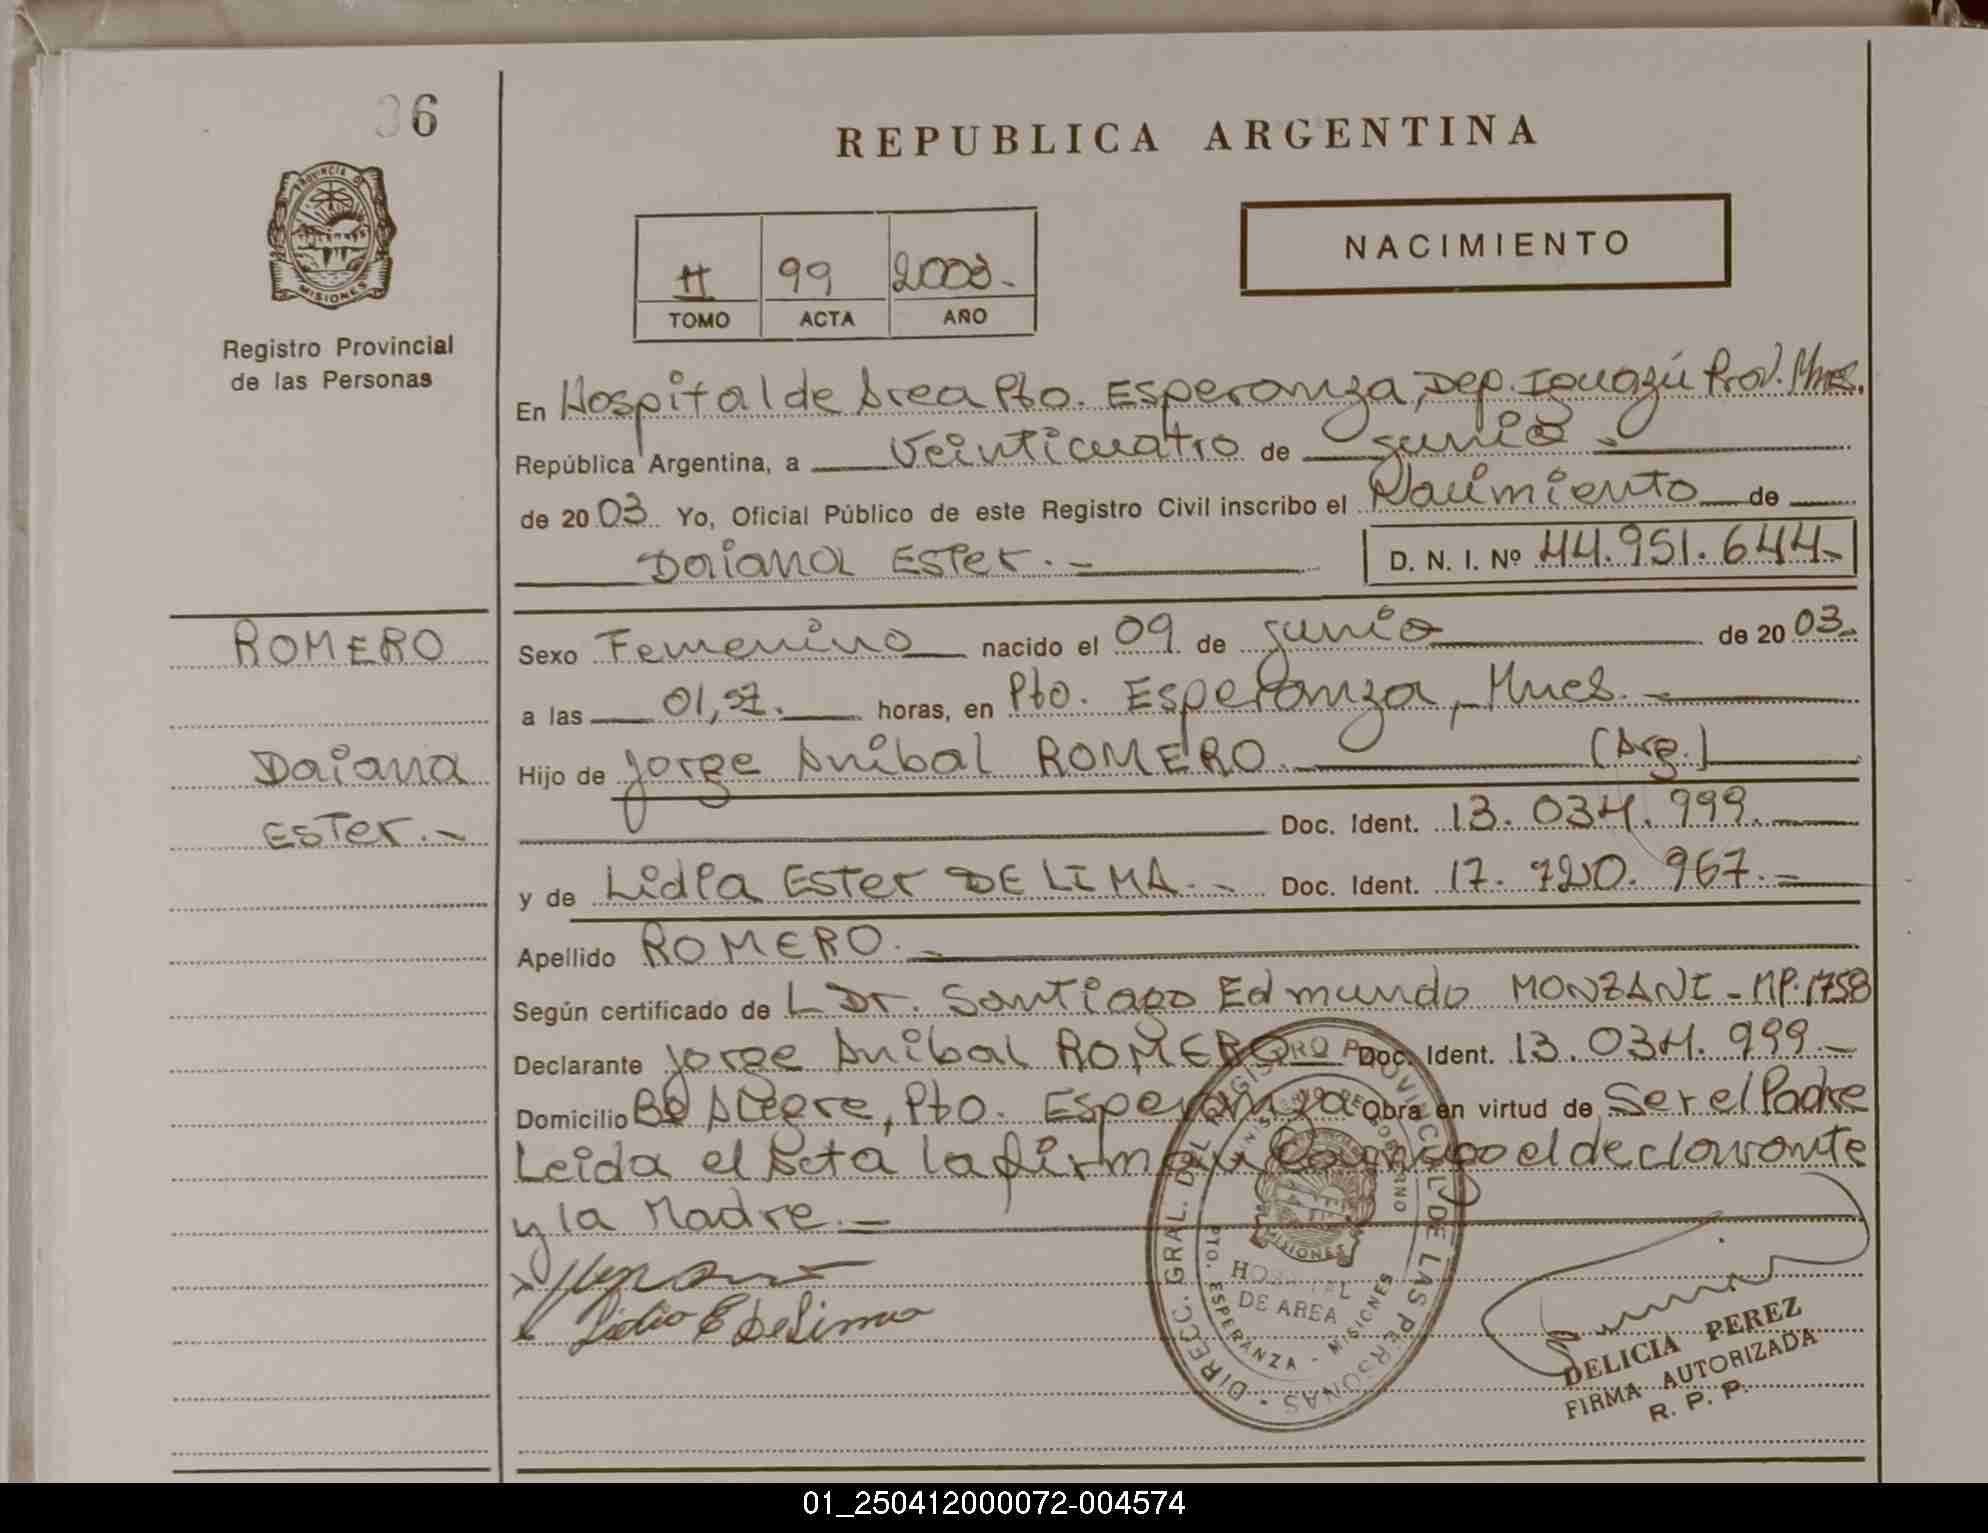 36
REPUBLICA ARGENTINA
PROVINCIA DE
MISIONES
Registro Provincial
de las Personas
NACIMIENTO
II 99 2003.-
TOMO ACTA AÑO
En Hospital de Area Pto. Esperanza, Dep. Iguazú Prov. Mnes.
República Argentina, a Veinticuatro de junio.-
de 2003. Yo, Oficial Público de este Registro Civil inscribo el Nacimiento de
Daiana Ester.-
D. N. I. Nº 44.951.644-
ROMERO
Daiana
Ester.-
Sexo Femenino nacido el 09 de junio de 2003-
a las 01, horas, en Pto. Esperanza, Mnes.-
Hijo de Jorge Anibal ROMERO.- (Arg.)
Doc. Ident. 13.034.999.-
y de Lidia Ester DE LIMA.- Doc. Ident. 17.720.967.-
Apellido ROMERO.-
Según certificado de L Dr. Santiago Edmundo MONZANI - MP. 1758
Declarante Jorge Anibal ROMERO Doc. Ident. 13.034.999-
Domicilio Bº Alegre, Pto. Esperanza Obra en virtud de Ser el Padre
Leida el Acta la firman conmigo el declarante
y la Madre.-
Lidia E De Lima
DIRECC. GRAL. DEL REGISTRO PROVINCIAL DE LAS PERSONAS
MINISTERIO DE GOBIERNO
MISIONES
HOSPITAL
DE AREA
PTO. ESPERANZA - MISIONES
DELICIA PEREZ
FIRMA AUTORIZADA
R. P. P.
01_250412000072-004574